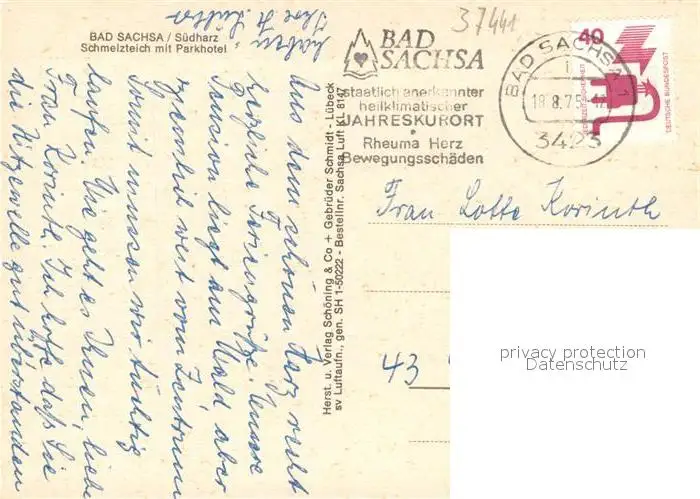 37441
BAD SACHSA / Südharz
Schmelzteich mit Parkhotel
BAD
SACHSA
staatlich anerkannter
heilklimatischer
JAHRESKURORT
Rheuma Herz
Bewegungsschäden
BAD SACHSA 1
18.8.75
3423
40
JEDERZEIT SICHERHEIT
DEUTSCHE BUNDESPOST
Herst. u. Verlag Schöning & Co + Gebrüder Schmidt - Lübeck
sv Luftaufn., gen. SH 1-50222 - Bestellnr. Sachsa Luft KL 8147
Aus dem schönen Harz recht
herzliche Feriengrüße. Unsere
Pension liegt am Wald aber
ziemlich weit vom Zentrum
somit müssen wir tüchtig
laufen. Wie geht es Ihnen, liebe
Frau Korinth. Ich hoffe daß Sie
die Hitzewelle gut überstanden
haben. Ihre
Frau Lotte Korinth
43
privacy protection
Datenschutz